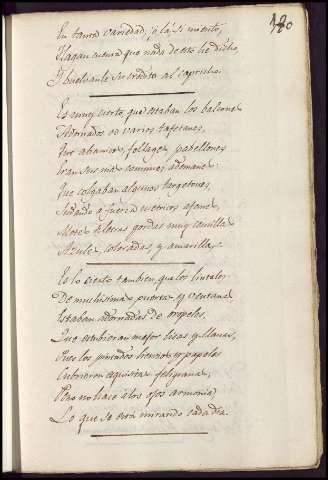 180
En tanta variedad; ó la si miento,
Hagan cuenta que nada de esto he dicho,
Y buelvanle su credito al capricho.
Es muy cierto que estaban los balcones
Adornados de varios tafetanes,
Que abanicos, follages, pabellones
Eran sus mas comunes ademanes
Que colgaban algunos targetones,
Sudando a fuerza
letras gordas muy
Azules, coloradas, y amarillas.
Es lo cierto tambien, que los lintales
De muchisimas puertas y ventanas
Estaban adornadas de oropeles,
Que estubieran mejor lisas, y llanas,
Pues los pintados lienzos, y papeles
Cubrieron esquisitas filigranas;
Pero no hace a los ojos armonia,
Lo que se está mirando cada dia.